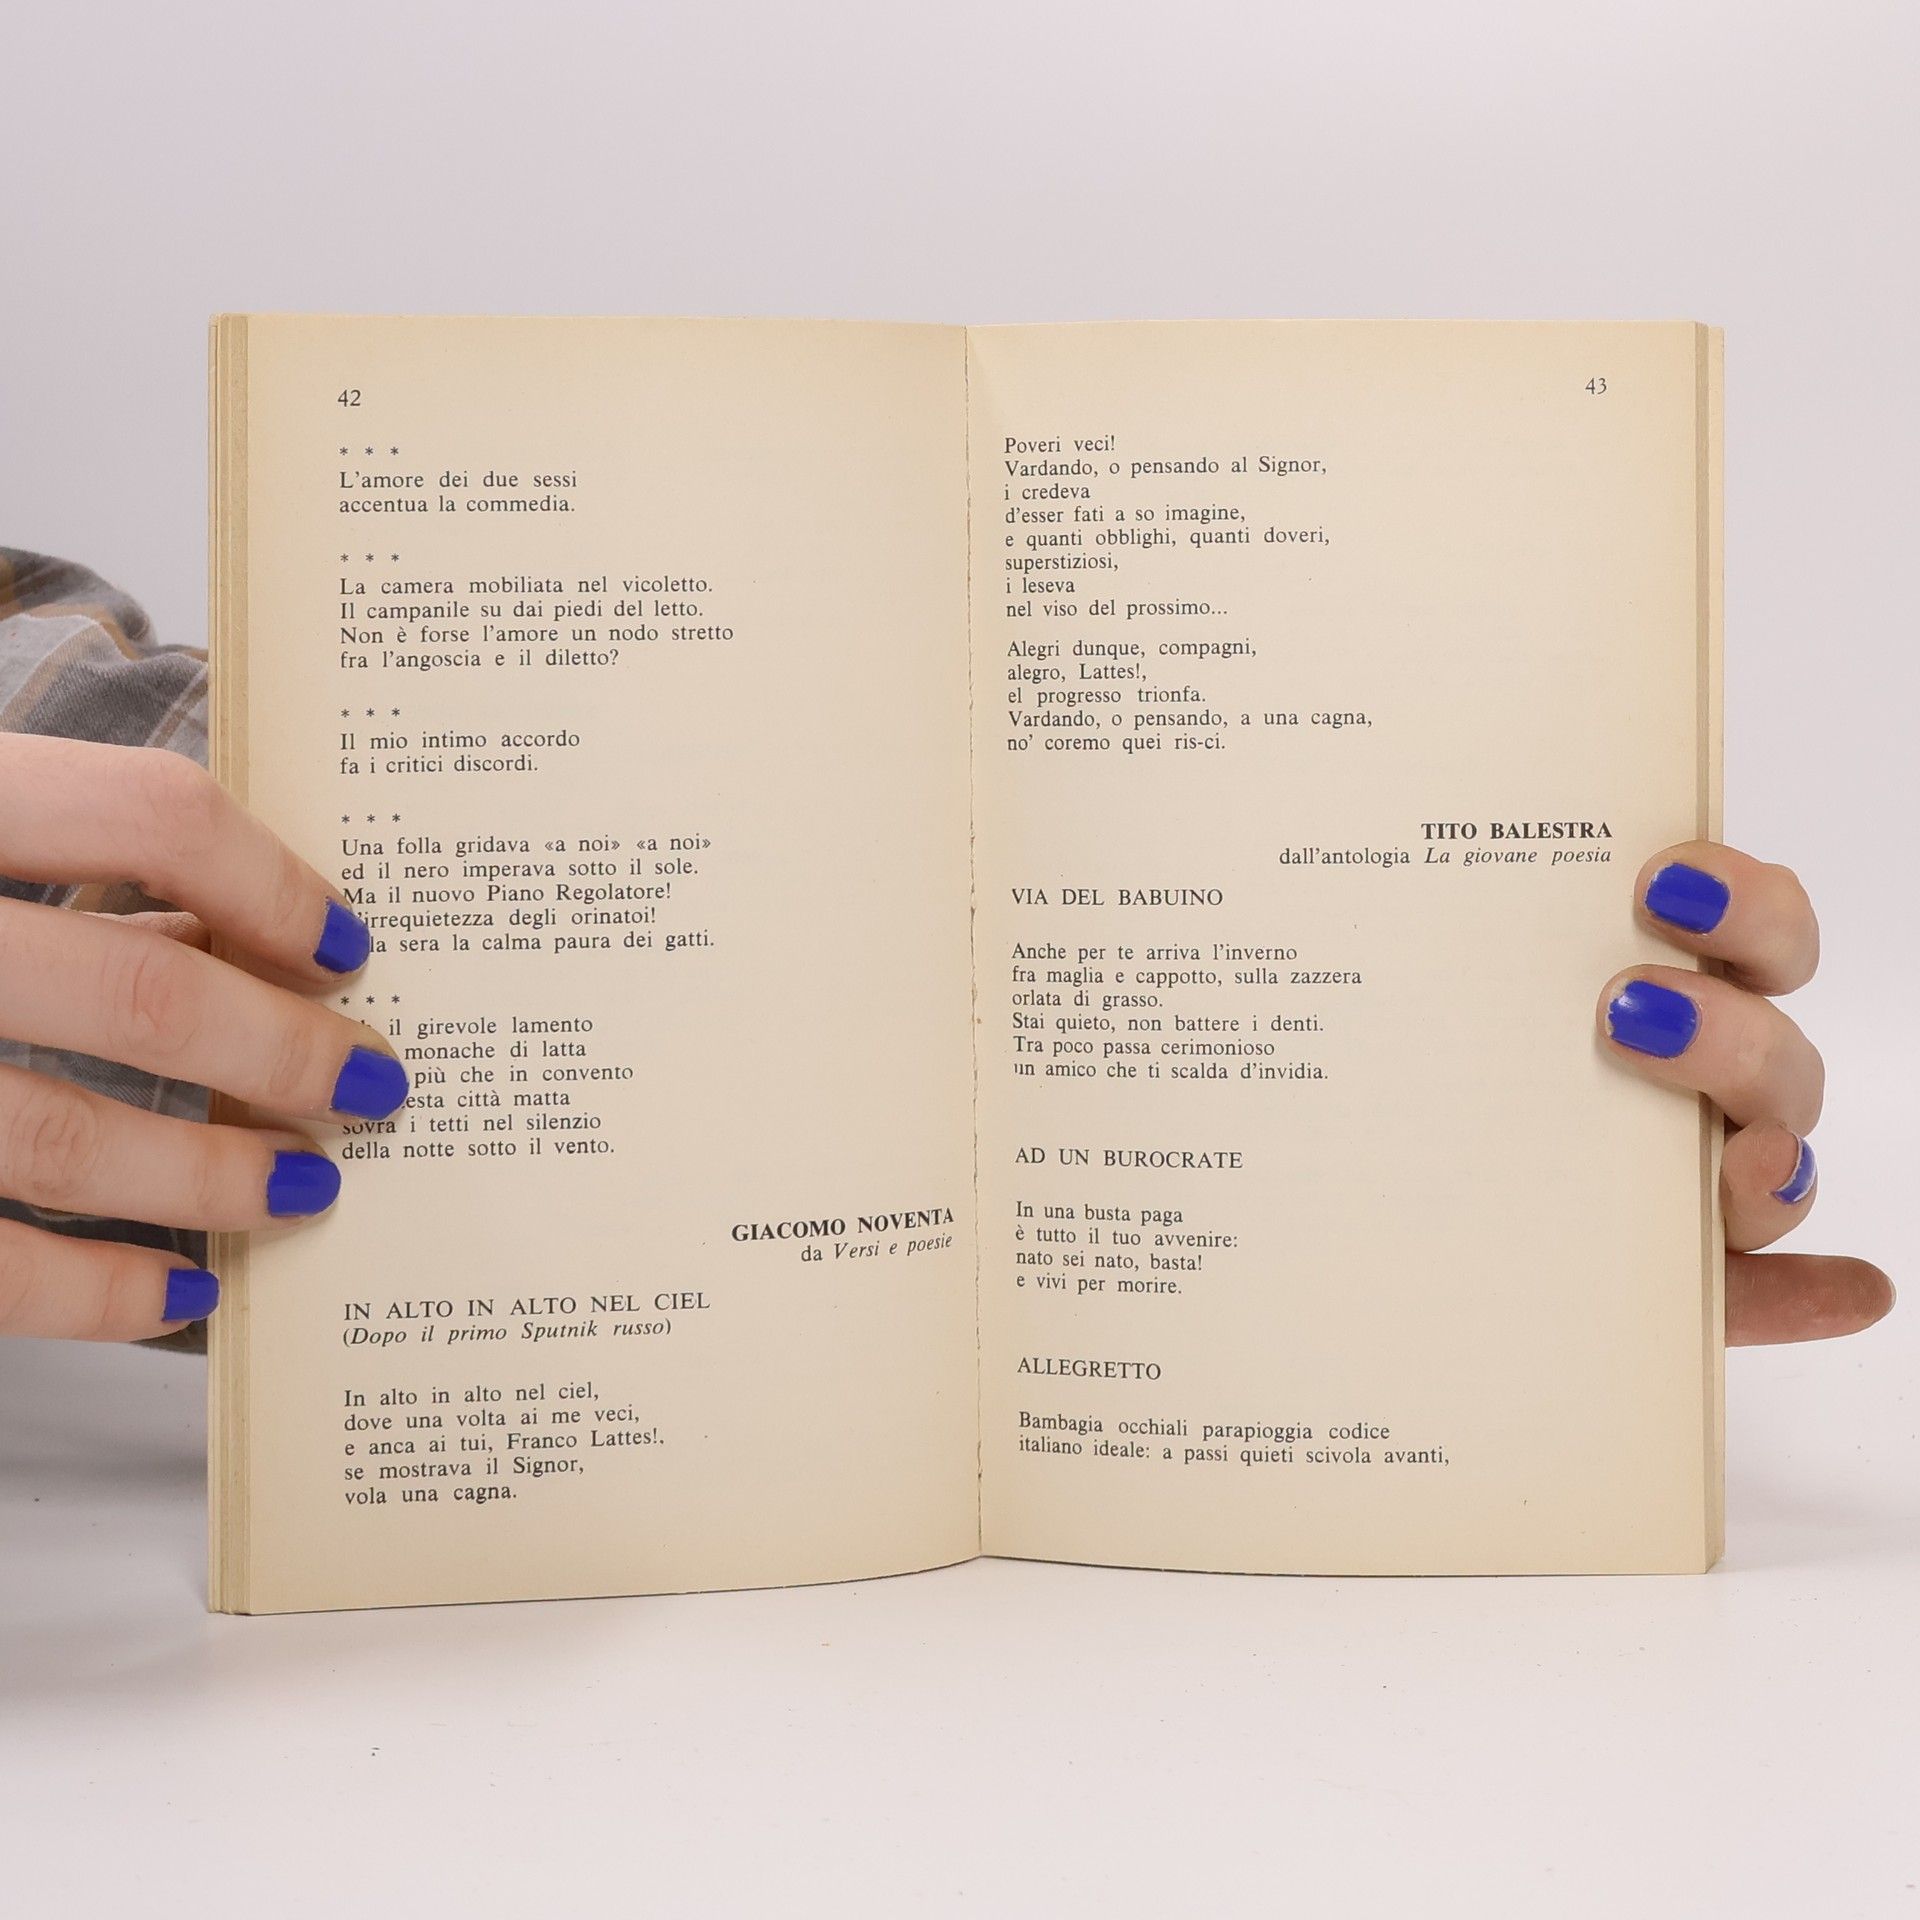 42
* * *
L'amore dei due sessi
accentua la commedia.
* * *
La camera mobiliata nel vicoletto.
Il campanile su dai piedi del letto.
Non è forse l'amore un nodo stretto
fra l'angoscia e il diletto?
* * *
Il mio intimo accordo
fa i critici discordi.
* * *
Una folla gridava «a noi» «a noi»
ed il nero imperava sotto il sole.
Ma il nuovo Piano Regolatore!
irrequietezza degli orinatoi!
la sera la calma paura dei gatti.
* * *
il girevole lamento
monache di latta
più che in convento
città matta
sovra i tetti nel silenzio
della notte sotto il vento.
GIACOMO NOVENTA
da Versi e poesie
IN ALTO IN ALTO NEL CIEL
(Dopo il primo Sputnik russo)
In alto in alto nel ciel,
dove una volta ai me veci,
e anca ai tui, Franco Lattes!,
se mostrava il Signor,
vola una cagna.
43
Poveri veci!
Vardando, o pensando al Signor,
i credeva
d'esser fati a so imagine,
e quanti obblighi, quanti doveri,
superstiziosi,
i leseva
nel viso del prossimo...
Alegri dunque, compagni,
alegro, Lattes!,
el progresso trionfa.
Vardando, o pensando, a una cagna,
no' coremo quei ris-ci.
TITO BALESTRA
dall'antologia La giovane poesia
VIA DEL BABUINO
Anche per te arriva l'inverno
fra maglia e cappotto, sulla zazzera
orlata di grasso.
Stai quieto, non battere i denti.
Tra poco passa cerimonioso
un amico che ti scalda d'invidia.
AD UN BUROCRATE
In una busta paga
è tutto il tuo avvenire:
nato sei nato, basta!
e vivi per morire.
ALLEGRETTO
Bambagia occhiali parapioggia codice
italiano ideale: a passi quieti scivola avanti,